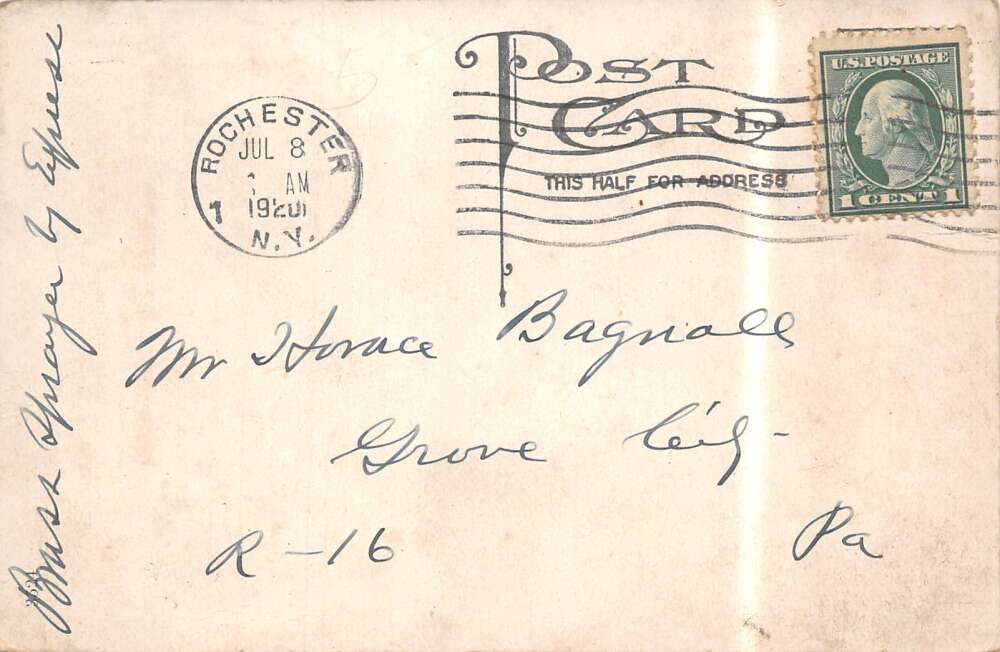 POST
CARD
THIS HALF FOR ADDRESS
U.S. POSTAGE
1 CENT 1
ROCHESTER
JUL 8
AM
1920
N.Y.
1
Mr Horace Bagnall
Grove City
R-16
Pa
Brass Sprayer by Express